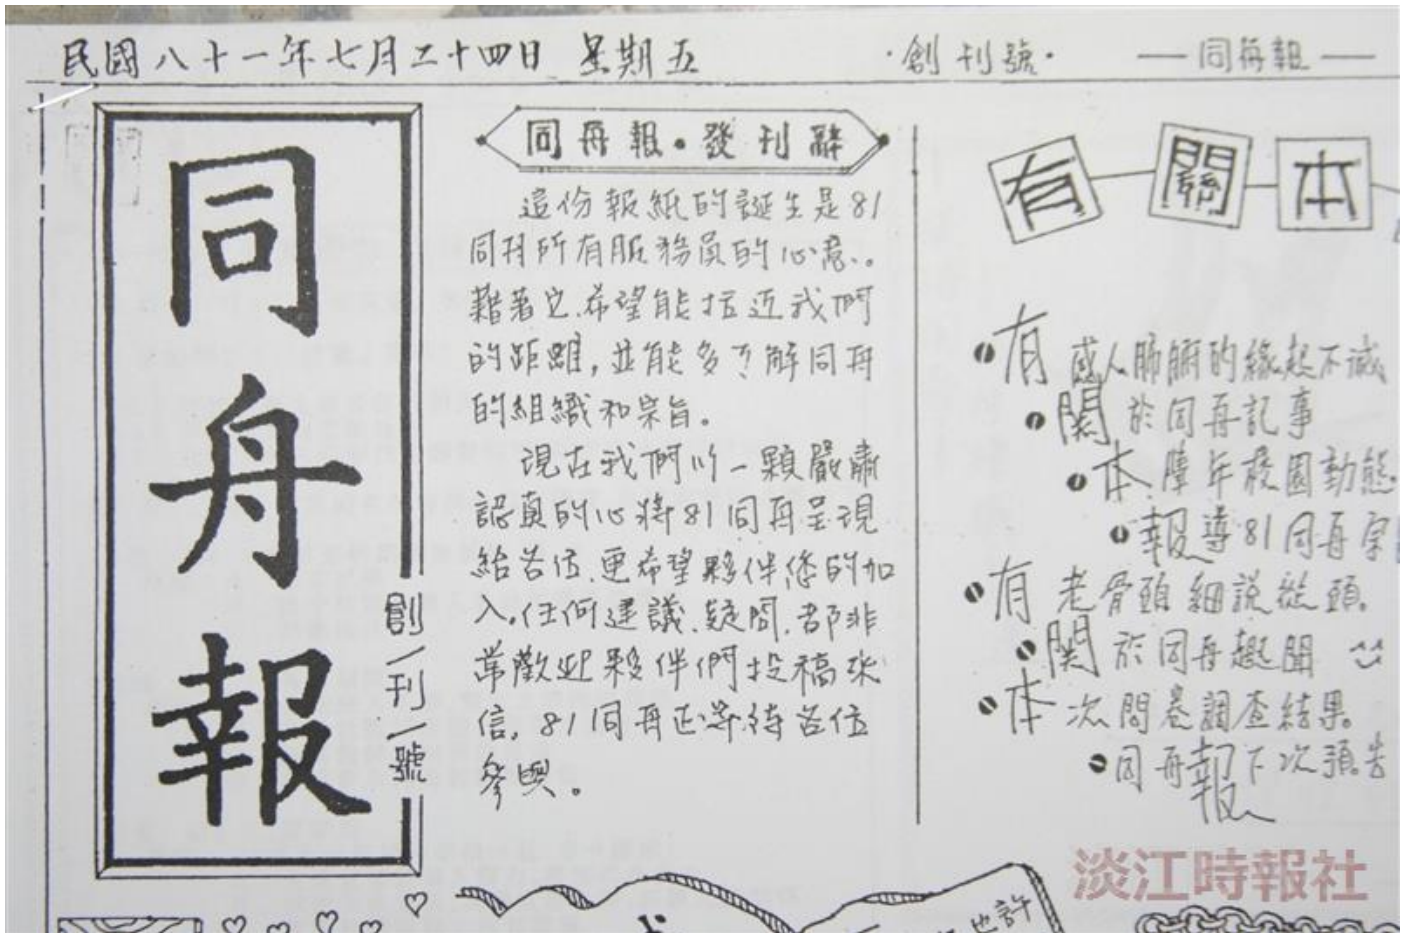 民國八十一年七月二十四日 星期五
·創刊號·
同舟報
同舟報
創刊號
同舟報·發刊辭
這份報紙的誕生是81
同舟所有服務員的心意。
藉著它,希望能拉近我們
的距離,並能多了解同舟
的組織和宗旨。
現在我們以一顆嚴肅
認真的心將81同舟呈現
給各位,更希望夥伴您的加
入。任何建議、疑問,都非
常歡迎夥伴們投稿來
信,81同舟正等待各位
參與。
有關本
有感人肺腑的緣起不滅
關於同舟記事
本陣年校園動態
報導81同舟字
有老骨頭細說從頭。
關於同舟趣聞
本次問卷調查結果。
同舟報下次預告
也許
淡江時報社